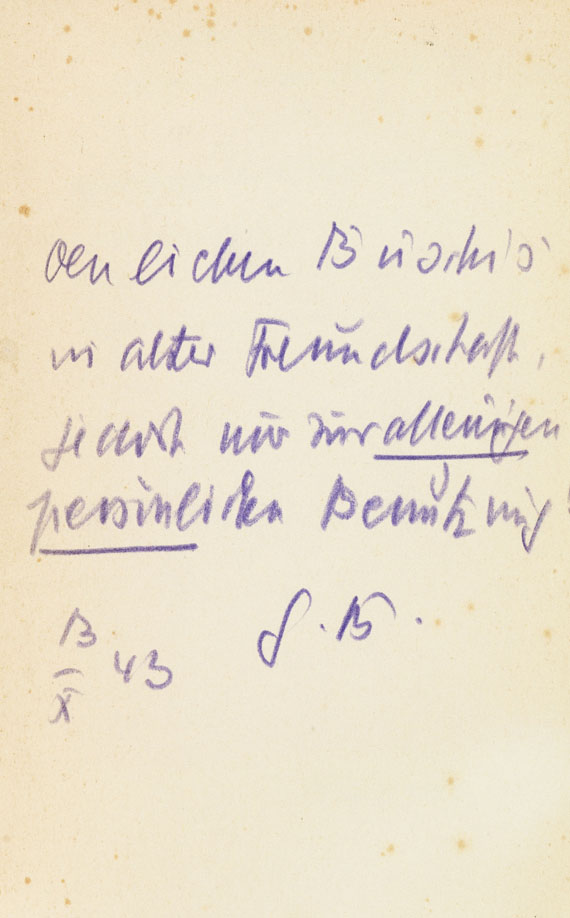 den lieben
in alter Freundschaft,
jedoch nur zur alleinigen
persönlichen Benutzung!
G. B.
13
X 43